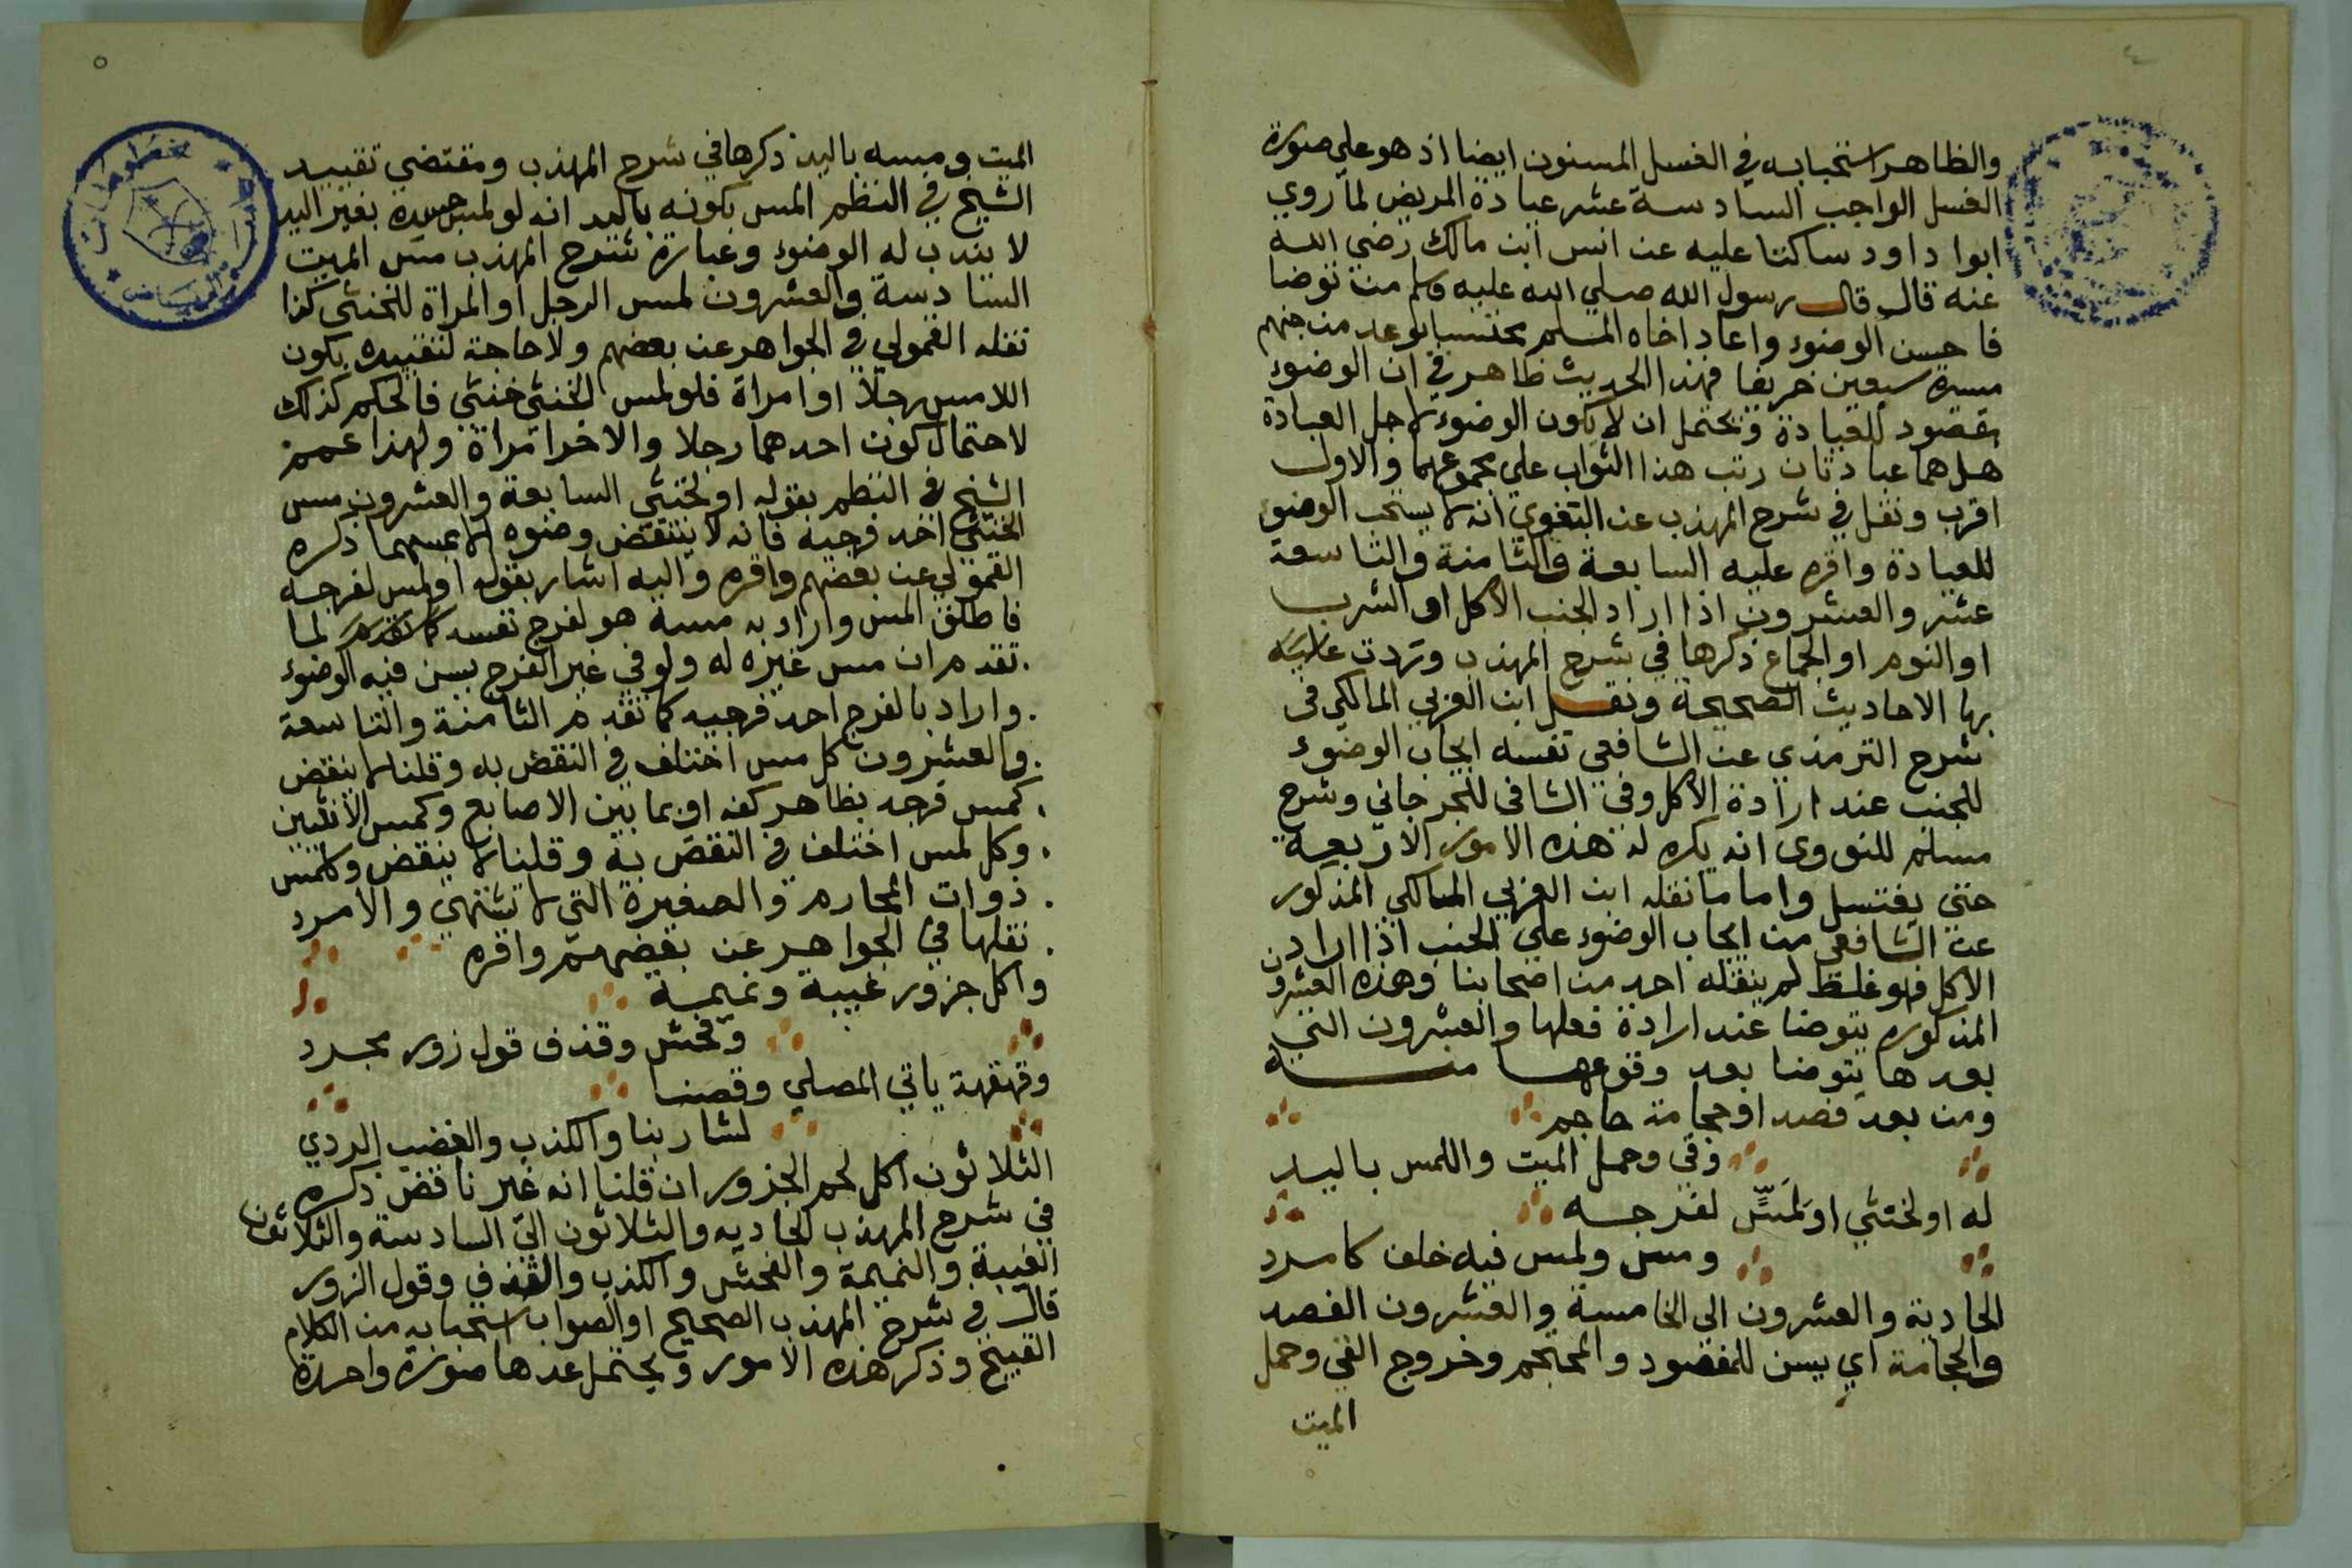 ٤
والظاهر استحبابه في الغسل المسنون ايضا اذ هو علي صورة
الغسل الواجب السادسة عشر عيادة المريض لما روي
ابوا داود ساكتا عليه عن انس ابن مالك رضي الله
عنه قال قال رسول الله صلي الله عليه وسلم من توضا
فاحسن الوضوء واعاد اخاه المسلم محتسبا بوعد من جهنم
مسيرة سبعين خريفا فهذا الحديث ظاهر في ان الوضوء
مقصود للعيادة ويحتمل ان لا يكون الوضوء لاجل العيادة
هل هما عبادتان رتب هذا الثواب علي مجموعهما والاول
اقرب ونقل في شرح المهذب عن البغوي انه لا يستحب الوضوء
للعيادة واقره عليه السابعة والثامنة والتاسعة
عشر والعشرون اذا اراد الجنب الاكل او الشرب
او النوم او الجماع ذكرها في شرح المهذب وردت عليه
بها الاحاديث الصحيحة ونقل ابن العربي المالكي في
شرح الترمذي عن الشافعي نفسه ايجاب الوضوء
للجنب عند ارادة الاكل وفي الشافي للجرجاني وشرح
مسلم للنووي انه يكره له هذه الامور الاربعة
حتي يغتسل واما ما نقله ابن العربي المالكي المذكور
عن الشافعي من ايجاب الوضوء علي الجنب اذا اراد
الاكل فهو غلط لم ينقله احد من اصحابنا وهذه العشرون
المذكوره يتوضا عند ارادة فعلها والعشرون التي
بعدها يتوضا بعد وقوعها منه
ومن بعد فصد او حجامة حاجم
وفي وحمل الميت واللمس باليد
له او لخنثي او لمَسٍّ لفرجه
ومس ولمس فيه خلف كامرد
الحادية والعشرون الي الخامسة والعشرون الفصد
والحجامة اي يسن للمفصود والمحتجم وخروج القي وحمل
الميت
٥
الميت ومسه باليد ذكرها في شرح المهذب ومقتضي تقييد
الشيخ في النظم المس بكونه باليد انه لو لمس جسده بغير اليد
لا يندب له الوضوء وعبارة شرح المهذب مس الميت
السادسة والعشرون لمس الرجل او المراة للخنثي كذا
نقله القمولي في الجواهر عن بعضهم ولا حاجة لتقييده بكون
اللامس رجلا او امراة فلو لمس الخنثي خنثي فالحكم كذلك
لاحتمال كون احدهما رجلا والاخر امراة ولهذا عمم
الشيخ في النظم بقوله او لخنثي السابعة والعشرون مس
الخنثي احد فرجيه فانه لا ينتقض وضوه الا بمسهما ذكره
القمولي عن بعضهم واقره واليه اشار بقوله او لمس لفرجه
فاطلق المس واراد به مسه هو لفرج نفسه كما تقدم لما
تقدم ان مس غيره له ولو في غير الفرج يسن فيه الوضوء
واراد بالفرج احد فرجيه كما تقدم الثامنة والتاسعة
والعشرون كل مس اختلف في النقض به وقلنا لا ينقض
كمس فرجه بظاهر كفه او بما بين الاصابع وكمس الانثيين
وكل لمس اختلف في النقض به وقلنا لا ينقض وكلمس
ذوات المحارم والصغيرة التي لا تشتهي والامرد
نقلها في الجواهر عن بعضهم واقره
واكل جزور غيبة ونميمة
وفحش وقذف قول زور مجرد
وقهقهة ياتي المصلي وقصنا
لشاربنا والكذب والغضب الردي
الثلاثون اكل لحم الجزور ان قلنا انه غير ناقض ذكره
في شرح المهذب الحاديه والثلاثون الي السادسة والثلاثون
الغيبة والنميمة والفحش والكذب والقذف وقول الزور
قال في شرح المهذب الصحيح او الصواب استحبابه من الكلام
القبيح وذكر هذه الامور ويحتمل عدها صورة واحدة